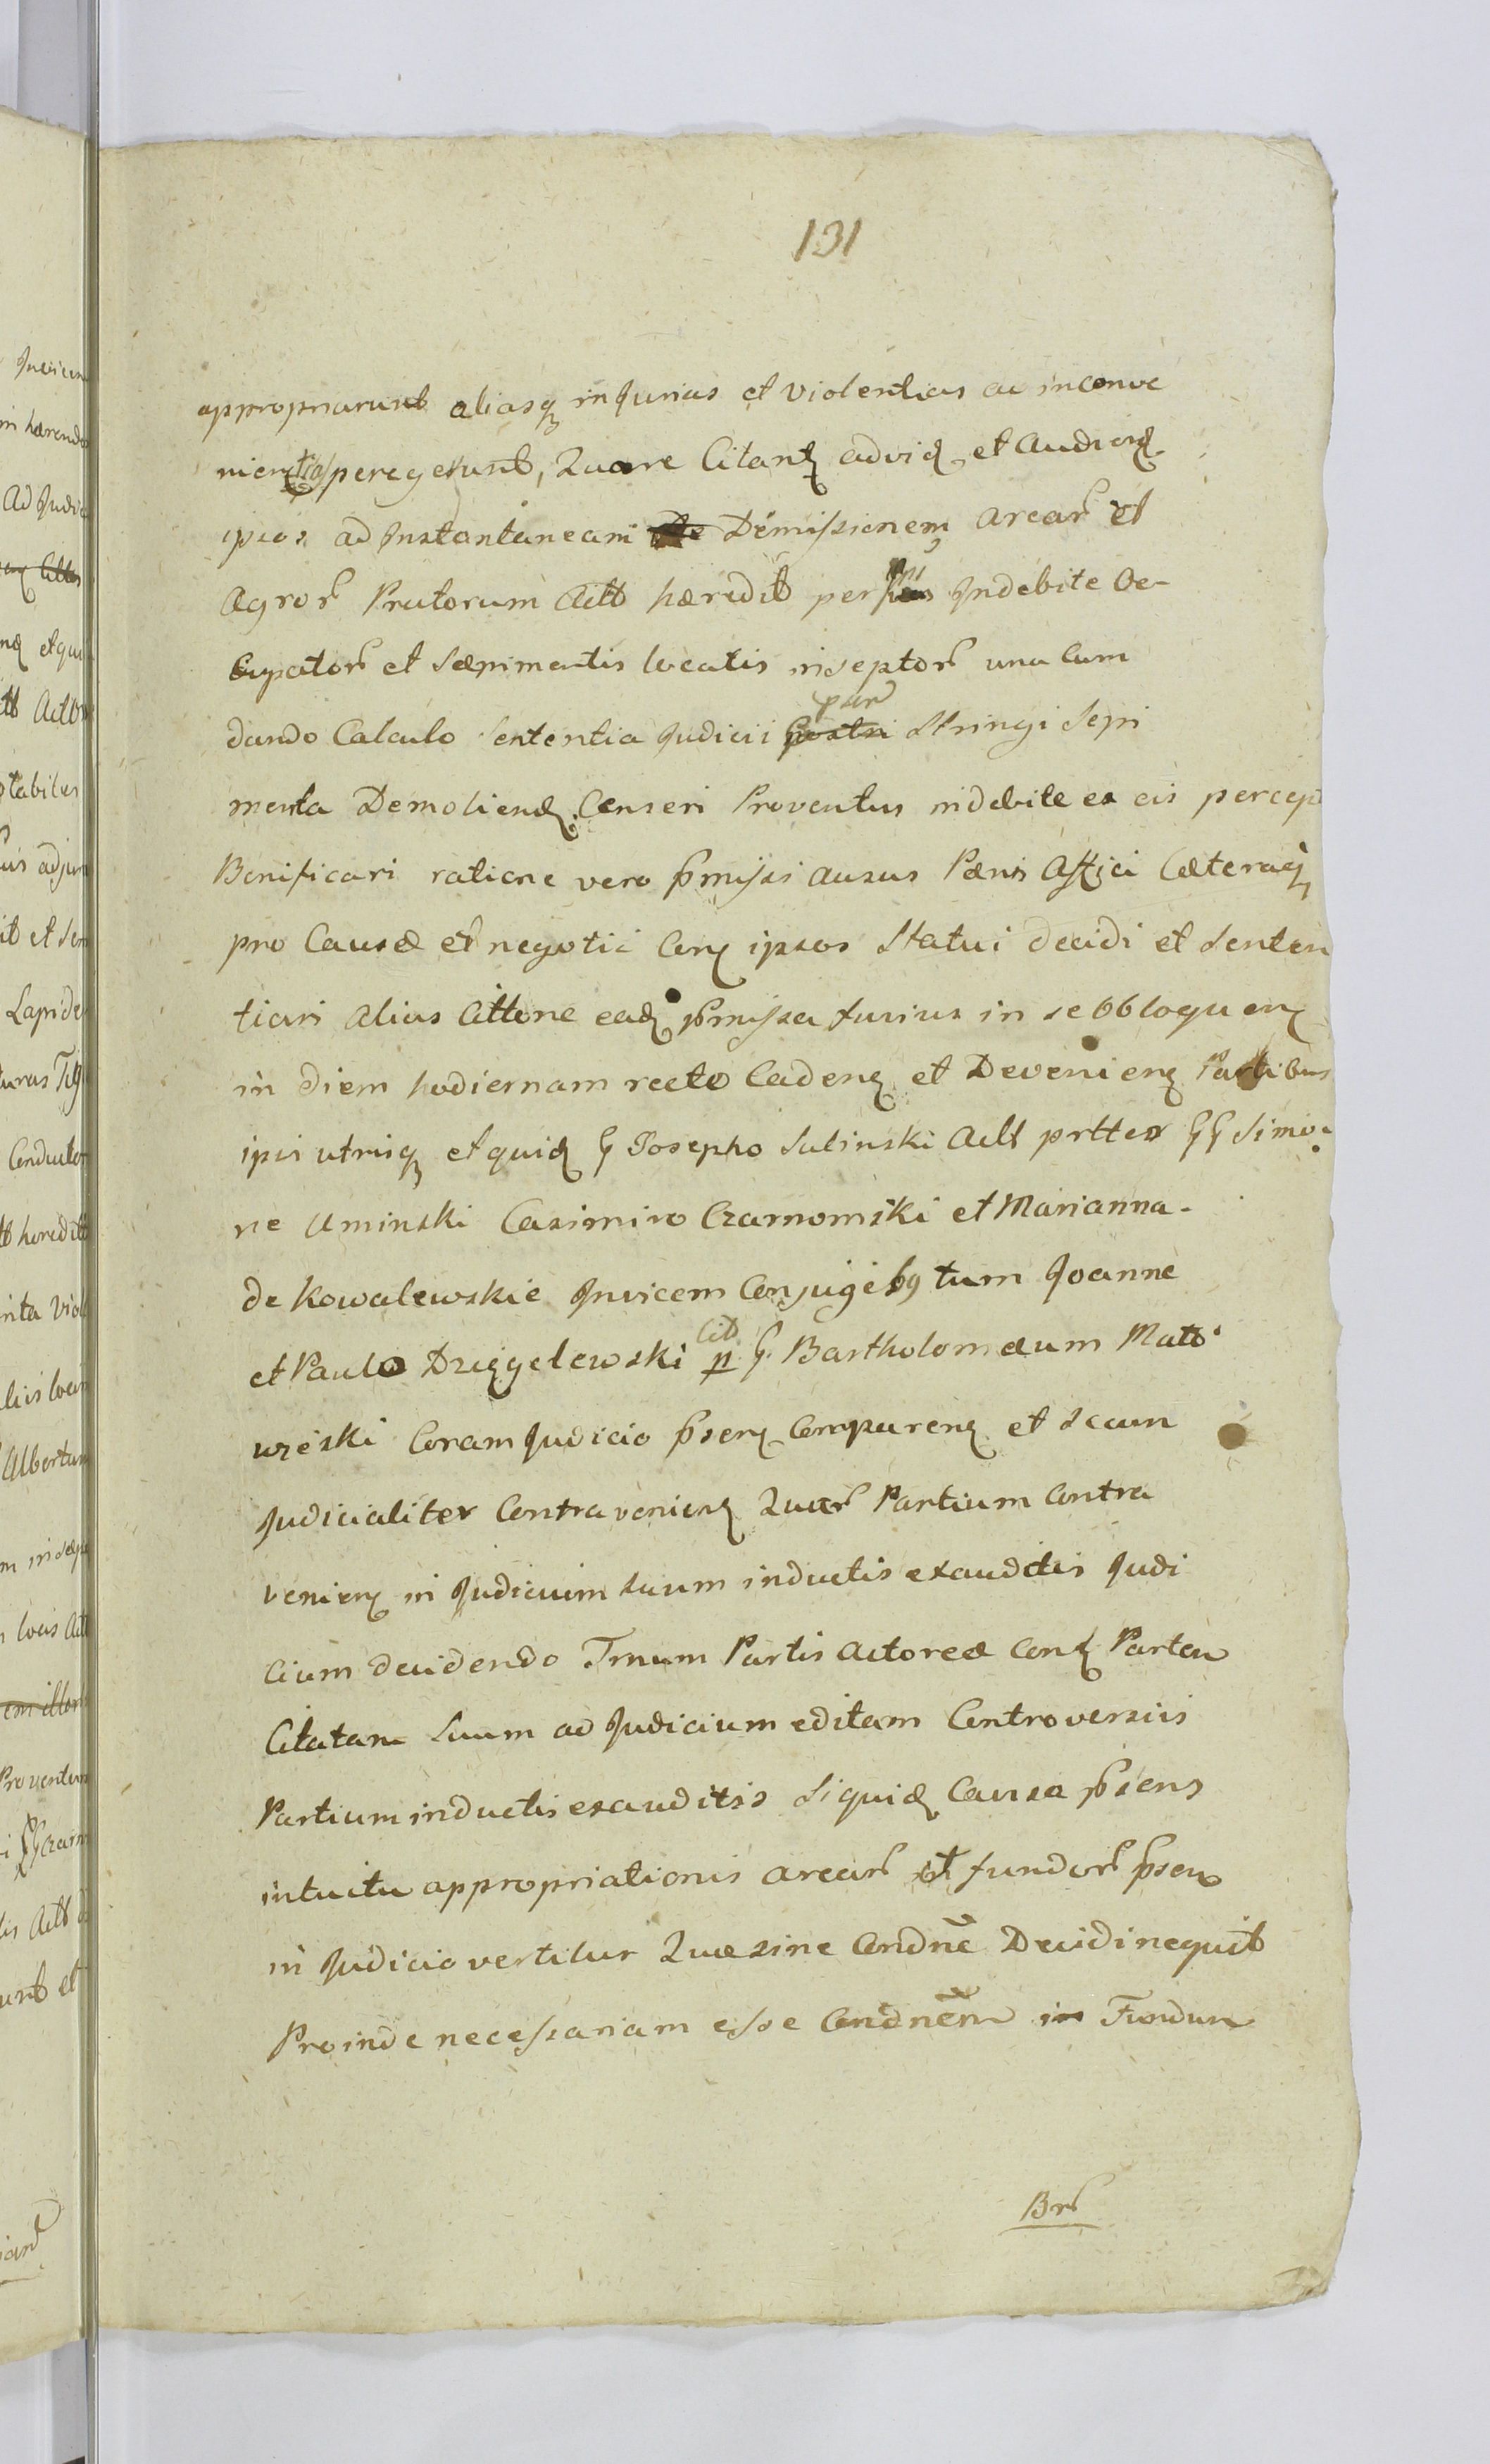 131
appropriarunt aliasq injurias et violentias ac inconve
nientias peregerunt, Quare Citant advid et Audiend
ipsos ad Instantaneam Demissionem Arear et
Agror Pratorum Actt hæredit per ipsos Indebite Oc-
cupator et Sæpimentis locatis inseptor una cum
dando Calculo sententia Judicii pñr Stringi Sepi
menta Demoliend Censeri Proventus indebite ex eis percep
Bonificari ratione vero pmissi ausus Pænis Affici Cæteraq
pro Causæ et negotii Cony ipsos Statui decidi et Senten
tiari Alias Cittone ead pmissa fusius in se Obloquen
in diem hodiernam recto Caden et Devenien Partibus
ipsis utrisq et quid G Josepho Sulinski Actt prtter GG Simo
ne Uminski Casimiro Czarnomski et Marianna
de Kowalewskie Invicem Conjugibq tum Joanne
et Paulo Dzięgelewski Citt p G. Bartholomæum Matt
uszeski Coram Judicio psen Comparen et secum
Judicialiter Contravenien Quar Partium Contra
venien in Judicium suum inductis exauditis Judi
cium decidendo Tmum Partis Actoreæ Con Partem
Citatam suum ad Judicium editam Controversiis
Partium inductis exauditis Siquid Causa psens
intuitu appropriationis arear et fundor psen
in Judicio vertitur Quæ sine Condne Decidi nequit
Proinde necessariam esse Condnem in Fundum